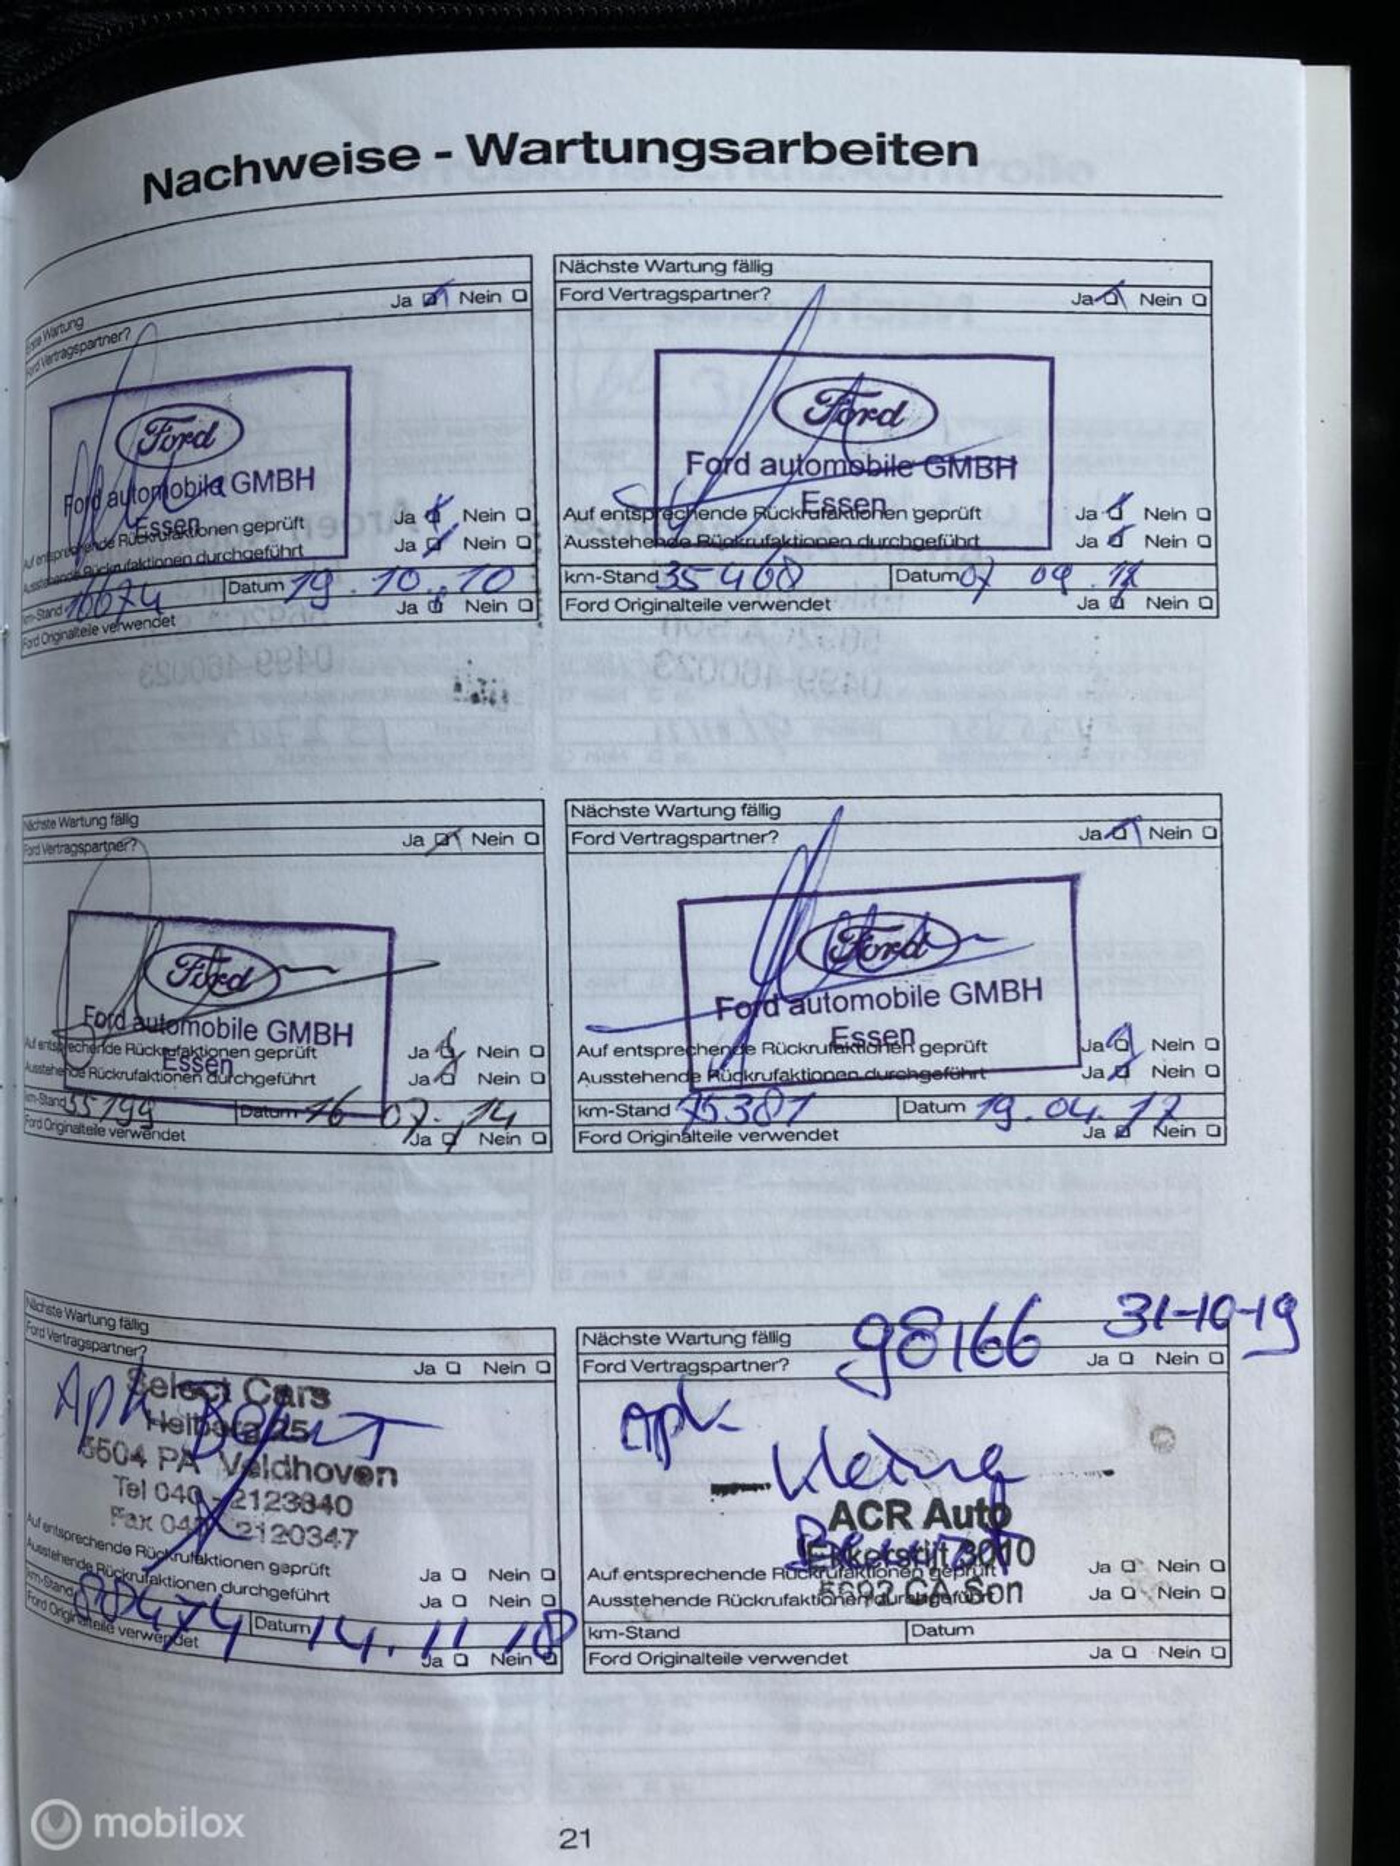 Nachweise - Wartungsarbeiten
Erste Wartung
Ford Vertragspartner?
Ja Nein
Ford
Ford automobile GMBH
Essen
Auf entsprechende Rückrufaktionen geprüft
Ja Nein
Ausstehende Rückrufaktionen durchgeführt
Ja Nein
km-Stand 16674 Datum 19.10.10
Ford Originalteile verwendet
Ja Nein
Nächste Wartung fällig
Ford Vertragspartner?
Ja Nein
Ford
Ford automobile GMBH
Essen
Auf entsprechende Rückrufaktionen geprüft
Ja Nein
Ausstehende Rückrufaktionen durchgeführt
Ja Nein
km-Stand 35468 Datum 07 09
Ford Originalteile verwendet
Ja Nein
Nächste Wartung fällig
Ford Vertragspartner?
Ja Nein
Ford
Ford automobile GMBH
Essen
Auf entsprechende Rückrufaktionen geprüft
Ja Nein
Ausstehende Rückrufaktionen durchgeführt
Ja Nein
km-Stand 55199 Datum 16 07.14
Ford Originalteile verwendet
Ja Nein
Nächste Wartung fällig
Ford Vertragspartner?
Ja Nein
Ford
Ford automobile GMBH
Essen
Auf entsprechende Rückrufaktionen geprüft
Ja Nein
Ausstehende Rückrufaktionen durchgeführt
Ja Nein
km-Stand 75381 Datum 19.04.17
Ford Originalteile verwendet
Ja Nein
Nächste Wartung fällig
Ford Vertragspartner?
Ja Nein
Apk Beurt
Select Cars
5504 PA Veldhoven
Tel 040 - 2123840
Fax 040 - 2120347
Auf entsprechende Rückrufaktionen geprüft
Ja Nein
Ausstehende Rückrufaktionen durchgeführt
Ja Nein
km-Stand 88474 Datum 14.11 18
Ford Originalteile verwendet
Ja Nein
98166 31-10-19
Nächste Wartung fällig
Ford Vertragspartner?
Ja Nein
Apk
kleine
Beurt
ACR Auto
Ekkersrijt 3010
5692 CA Son
Auf entsprechende Rückrufaktionen geprüft
Ja Nein
Ausstehende Rückrufaktionen durchgeführt
Ja Nein
km-Stand Datum
Ford Originalteile verwendet
Ja Nein
21
mobilox